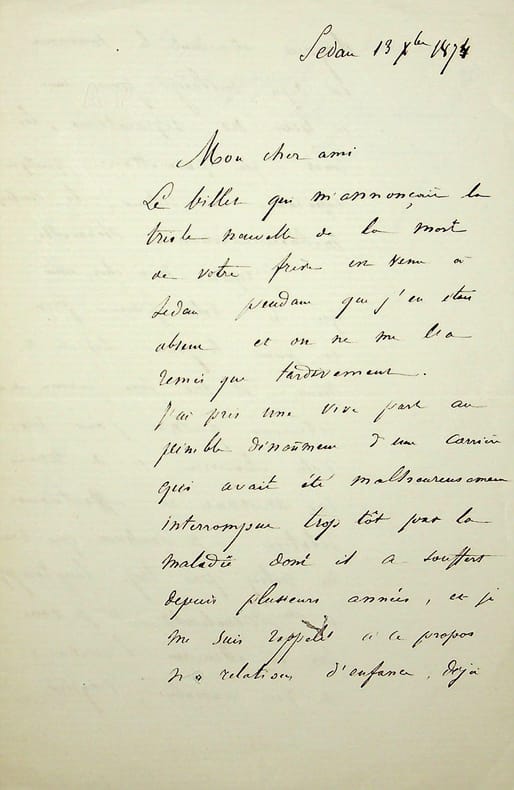 Sedan 13 Xbre 1874
Mon cher ami
Le billet qui m'annonçait la
triste nouvelle de la mort
de votre frère est venu à
Sedan pendant que j'en étais
absent et on ne me l'a
remis que tardivement.
J'ai pris une vive part au
pénible dénoûment d'une carrière
qui avait été malheureusement
interrompue trop tôt par la
maladie dont il a souffert
depuis plusieurs années, et je
me suis rappelé à ce propos
nos relations d'enfance, déjà